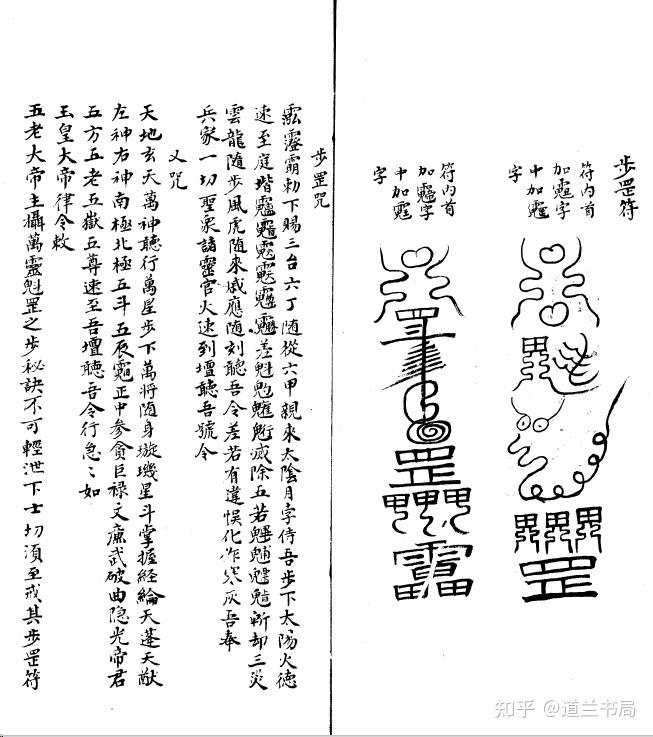 步罡符
符内首
加字
十加
字
符内首
加字
十加
字
罡
罡
步罡咒
霸勅下賜三台六丁随從六甲親來太陰月孛侍吾步下太陽火德
速至庭堦差魁滅除五若斬却三災
雲龍随步風虎随來感應随刻聽吾令差若有違悮化作寒灰吾奉
兵家一切聖衆諸靈官火速到壇聽吾號令
又咒
天地玄天萬神聽行萬星步下萬將随身璇璣星斗掌握經綸天蓬天猷
左神右神南極北極五斗五辰正中参貪巨禄文廉武破曲隐光帝君
五方五老五嶽五尊速至吾壇聽吾令行急〻如
玉皇大帝律令敕
五老大帝主攝萬靈魁罡之步秘訣不可輕泄下士切須至戒其步罡符
知乎 @道兰书局